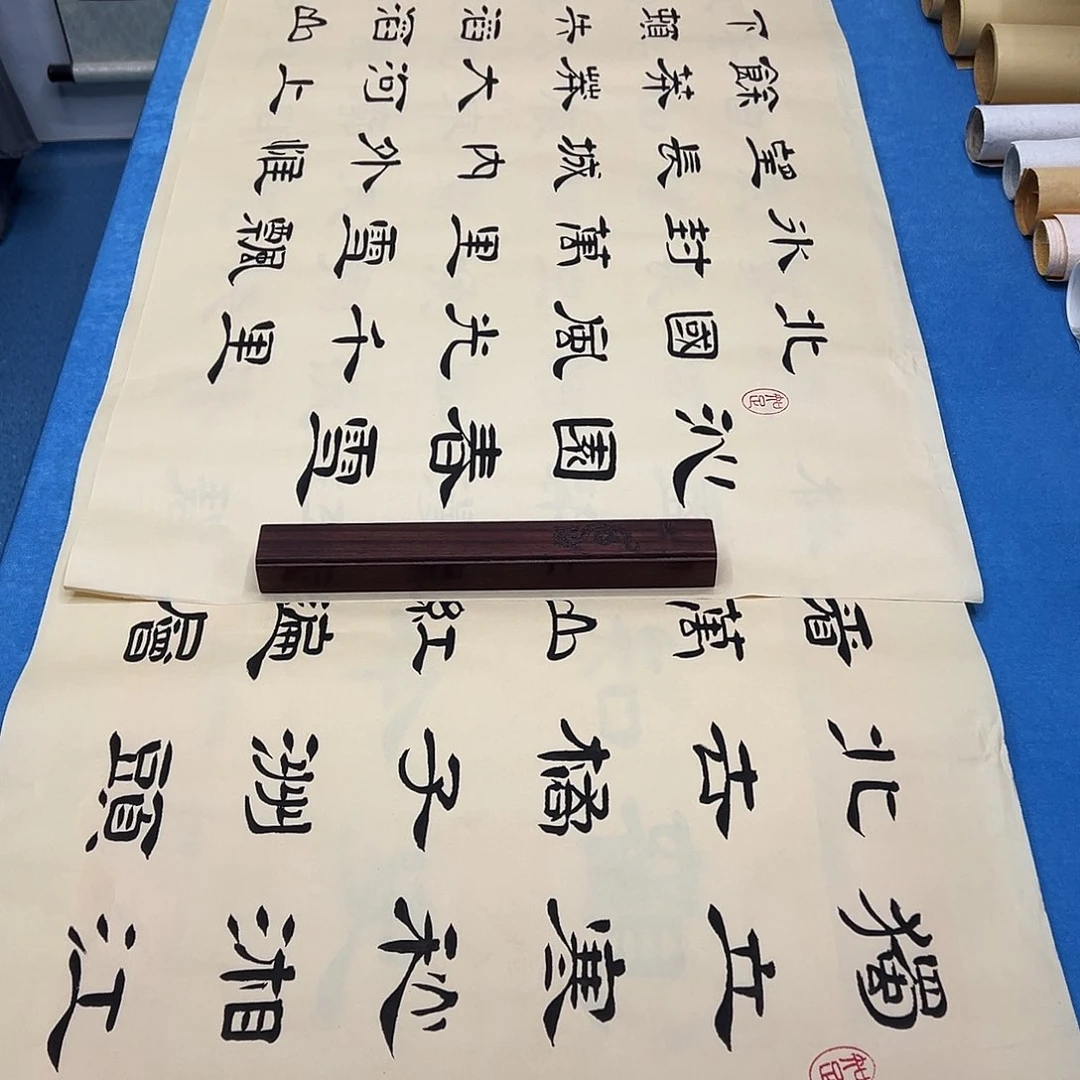 沁園春雪
北國風光千里
冰封萬里雪飄
望長城內外惟
餘莽莽大河上
下頓失滔滔山
獨立寒秋湘江
北去橘子洲頭
萬山紅遍層